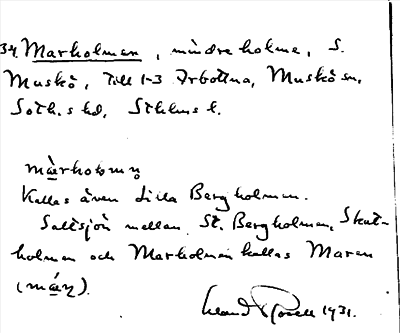 34. Marholmen, mindre holme, S.
Muskö, till 1-3 Arbottna, Muskö sn,
Soth.s hd, Sthlms l.
màrhoɭmṇ
Kallas även Lilla Bergholmen.
Saltsjön mellan St. Bergholmen, Skut-
holmen och Marholmen kallas Maren
(máṇ).
Rosell 1931.